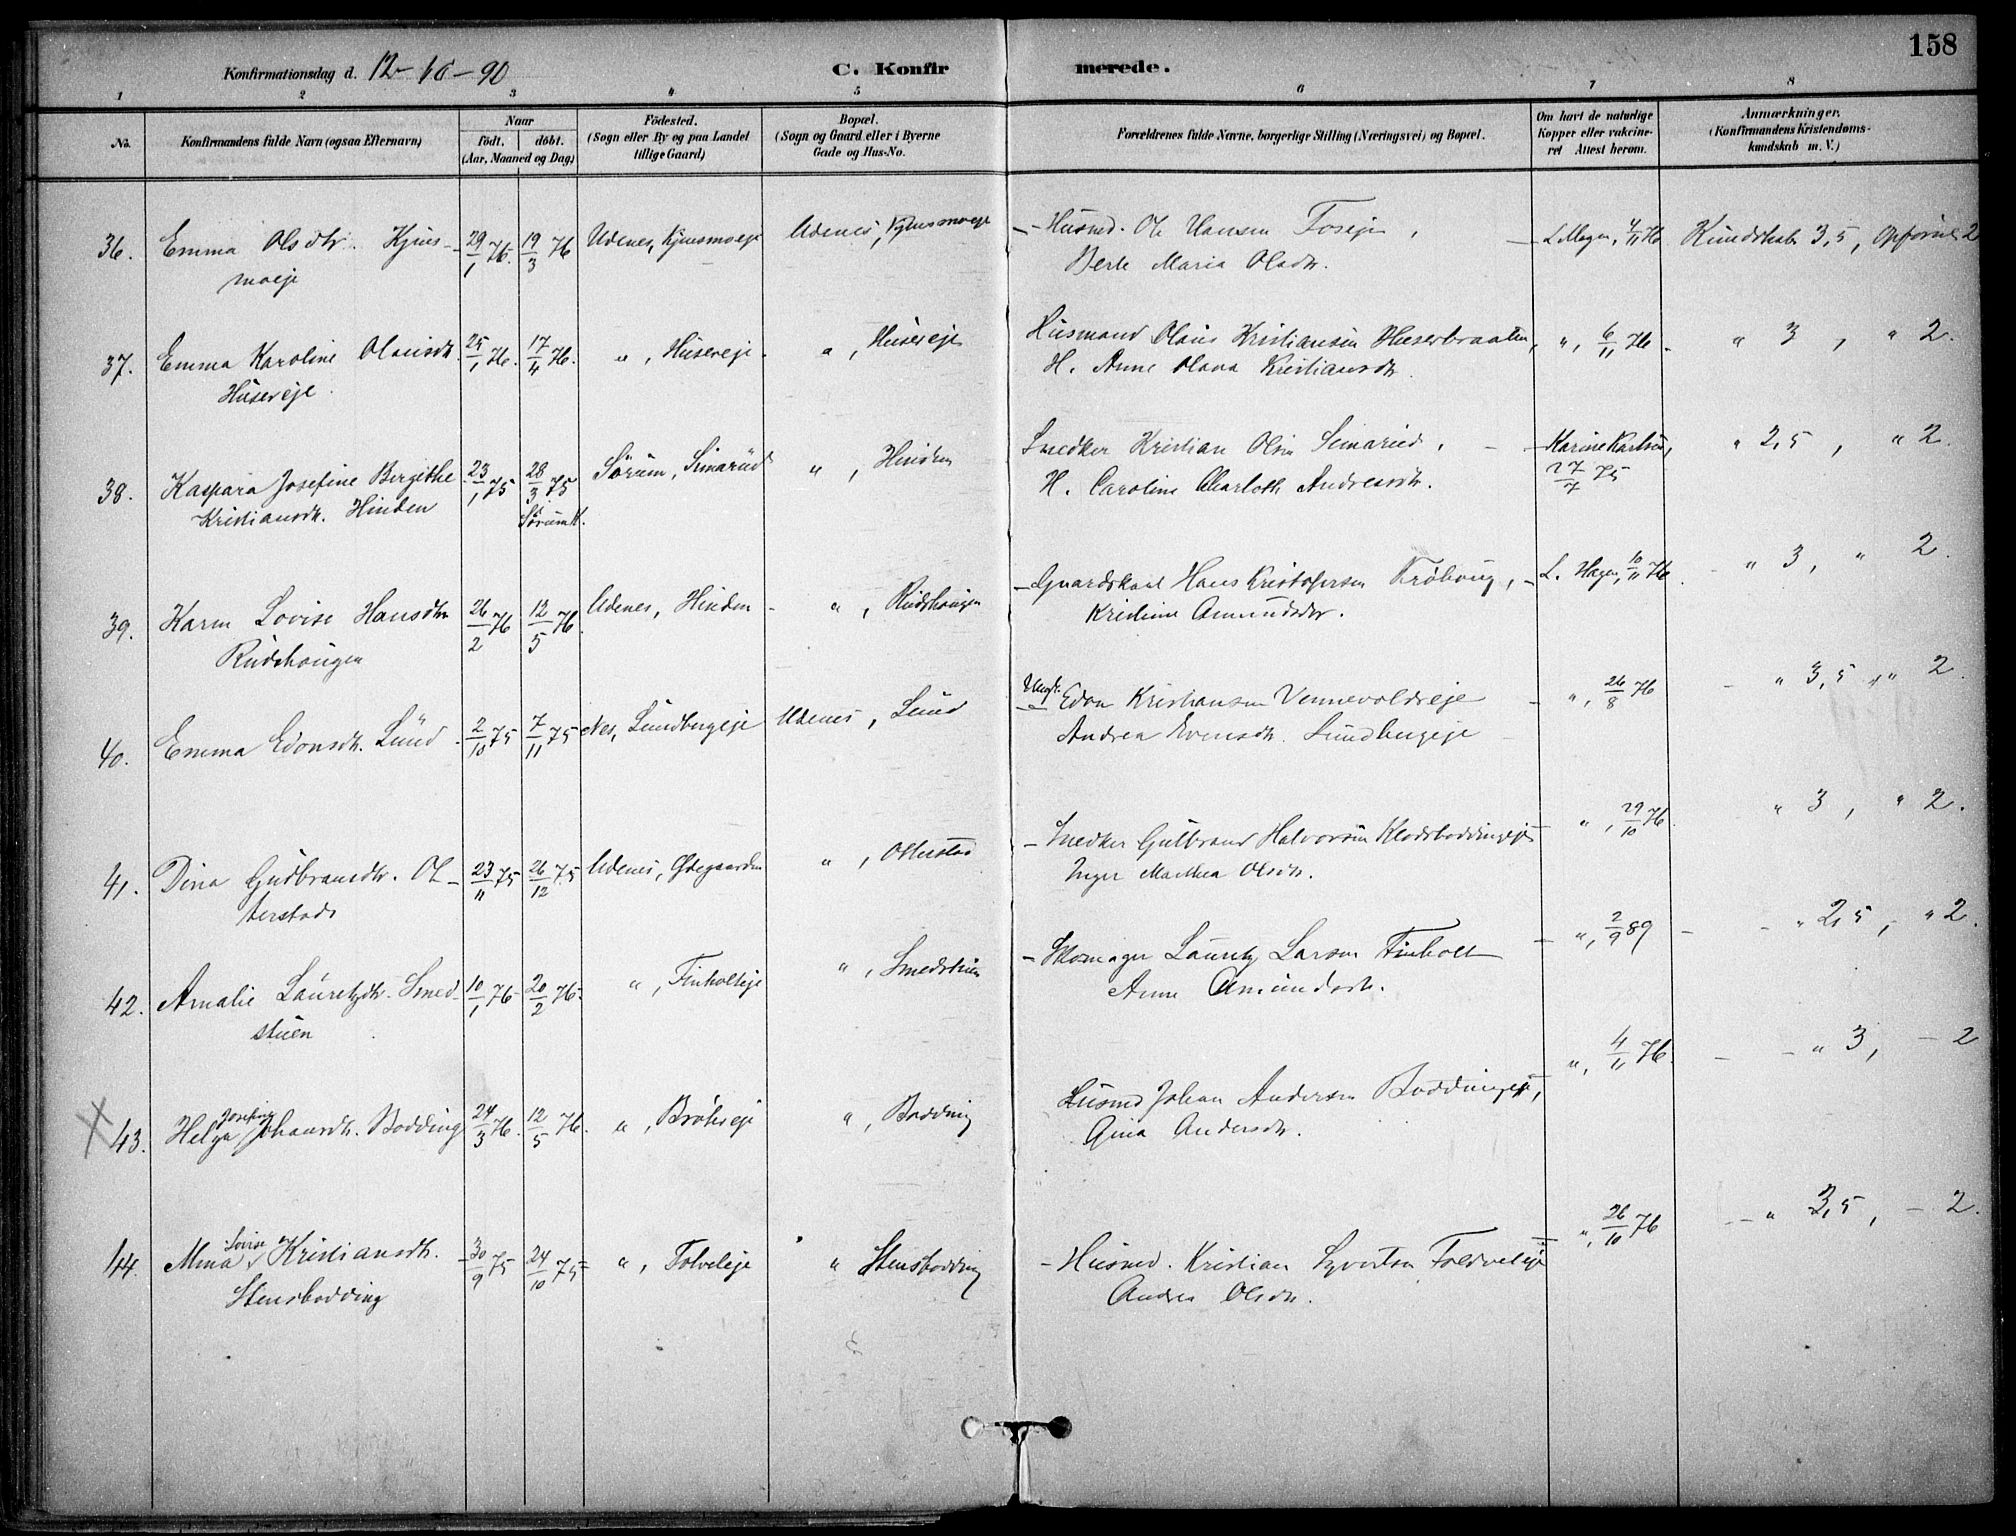 158
Konfirmationsdag d. 12-10-90 C. Konfirmerede.
1 2 3 4 5 6 7 8
No. Konfirmandens fulde Navn (ogsaa Efternavn) Naar født. døbt. (Aar, Maaned og Dag) Fødested. (Sogn eller By og paa Landet tillige Gaard) Bopæl. (Sogn og Gaard eller i Byerne Gade og Hus-No. Forældrenes fulde Navne, borgerlige Stilling (Næringsvei) og Bopæl. Om havt de naturlige Kopper eller vakcineret Attest herom. Anmærkninger. (Konfirmandens Kristendomskundskab m. V.)
36. Emma Olsdtr. Kjus- 29/1 76. 19/3 76 Udenes, Kjusmoeje Udenes, Kjusmoeje - Husmd. Ole Hansen Foseje, - L. Hagen, 4/11 76 Kundskab 3,5, Opførsel 2
moeje Berte Maria Olsdtr.
37. Emma Karoline Olausdtr. 25/1 76. 17/4 76. ", Husereje ", Husereje Husmand Olaus Kristiansen Huserbraaten, ", 6/11 76 - " 3, " 2.
Husereje. H. Anne Olava Kristiansdtr.
38. Kaspara Josefine Bergithe 23/1 75 28/3 75 Sørum, Simarud ", Hinden Snedker Kristian Olsen Simarud, - Karine Karlsen, " 2,5, " 2.
Kristiansdtr. Hinden Sørum K. H. Caroline Charlotte Andreasdtr. 27/7 75
39. Karen Lovise Hansdtr. 26/2 76 12/5 76. Udenes, Hinden - ", Rudshaugen - Gaardskarl Hans Kristofersen Frøhaug, - L. Hagen, 10/11 76. - " 3, " 2.
Rudshaugen Kristine Amundsdtr.
40. Emma Edonsdtr. Lund 2/10 75 7/11 75 Nes, Lundbergeje Udenes, Lund Ungk. Edon Kristiansen Vennevoldseje - ", 26/8 76 - " 3,5, " 2.
Andrea Evensdtr. Lundbergeje
41. Dina Gudbransdtr. Ot- 23/11 75 26/12 75 Udenes, Østegaarden ", Otterstad - Snedker Gulbrand Halvorsen Klodsboddingeje ", 29/10 76. " 3, " 2.
terstad Inger Mathea Olsdtr.
42. Amalie Lauretzdtr. Smed- 10/1 76- 20/2 76- ", Finholteje ", Smedstuen - Skomager Lauretz Larsen Finholt - ", 2/9 89 - " 2,5, " 2.
stuen Anne Amundsdtr.
43. Helga Josefine Johansdtr. Bodding 24/3 76. 12/5 76. ", Brøhseje ", Bodding Husmd Johan Andersen Boddingeje, ", 4/11 76. - " 3, - 2
Gina Andersdtr.
44. Mina Lovise Kristiansdtr. 30/9 75 24/10 75 ", Tolveleje " Stensbodding - Husmd. Kristian Syvertsen Foldveleje ", 26/10 76 - " 3,5, - 2.
Stensbodding Andrea Olsdtr.